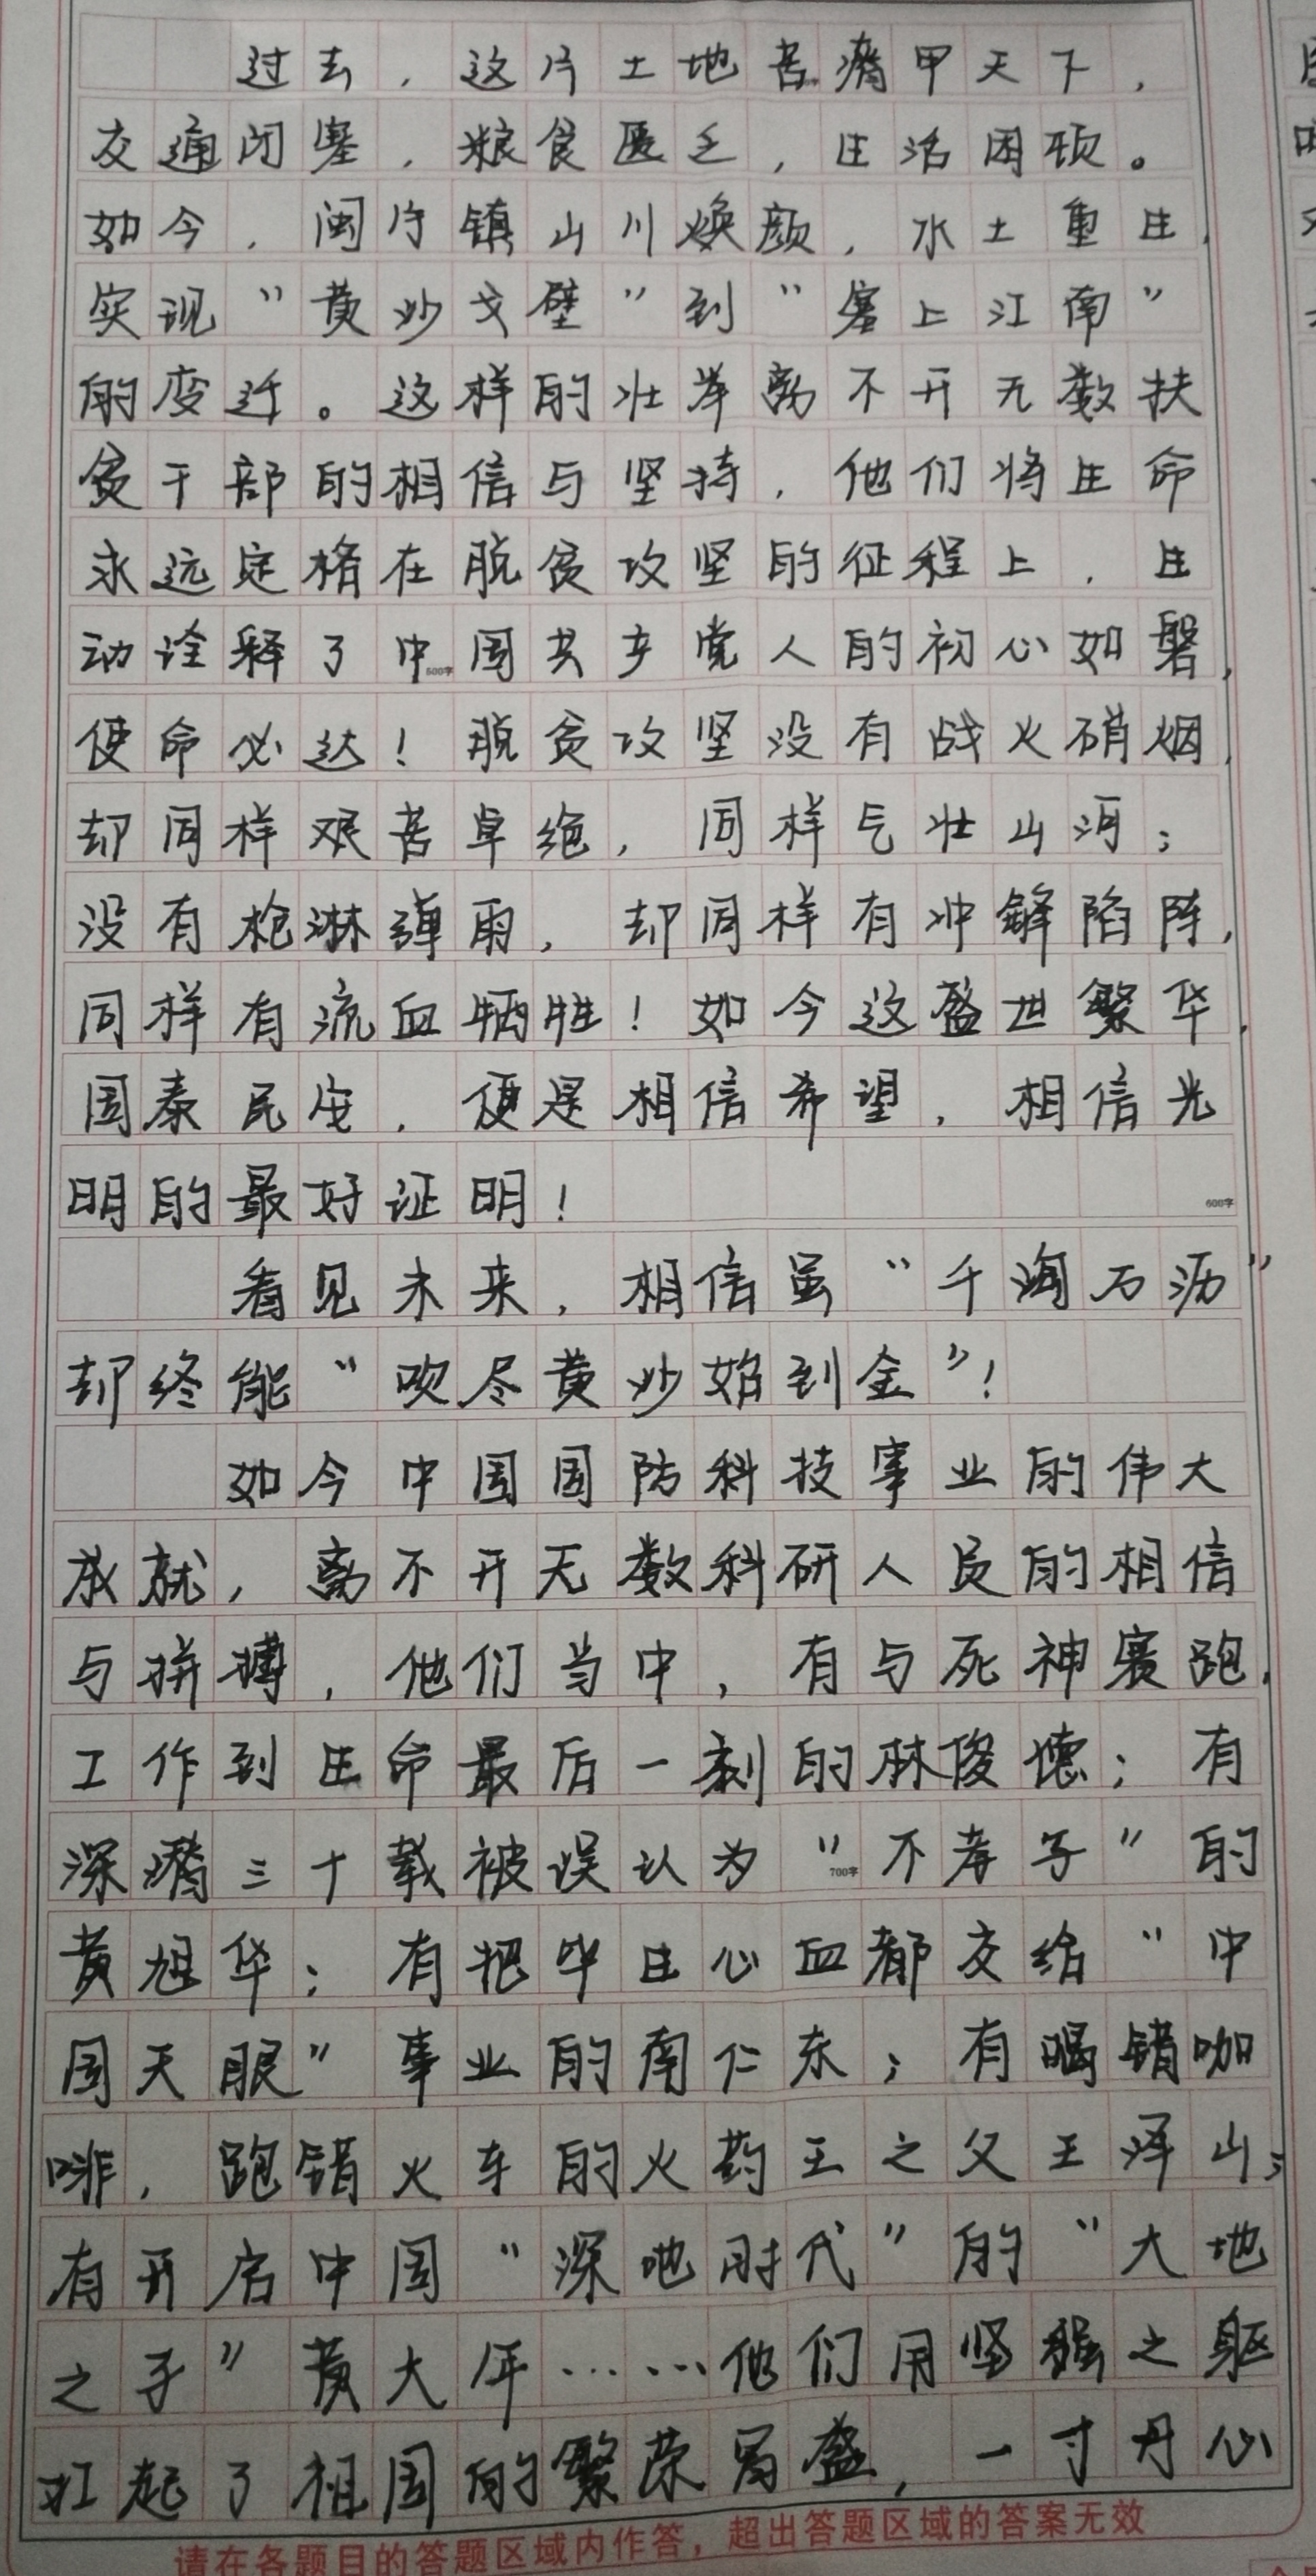 过去，这片土地苦瘠甲天下，
400字
交通闭塞，粮食匮乏，生活困顿。
如今，闽宁镇山川焕颜，水土重生，
实现“黄沙戈壁”到“塞上江南”
的变迁。这样的壮举离不开无数扶
贫干部的相信与坚持，他们将生命
永远定格在脱贫攻坚的征程上，生
动诠释了中国共产党人的初心如磐，
500字
使命必达！脱贫攻坚没有战火硝烟，
却同样艰苦卓绝，同样气壮山河；
没有枪淋弹雨，却同样有冲锋陷阵，
同样有流血牺牲！如今这盛世繁华，
国泰民安，便是相信希望，相信光
明的最好证明！
600字
看见未来，相信虽“千淘万沥”
却终能“吹尽黄沙始到金”！
如今中国国防科技事业的伟大
成就，离不开无数科研人员的相信
与拼搏，他们当中，有与死神赛跑，
工作到生命最后一刻的林俊德；有
深潜三十载被误认为“不孝子”的
700字
黄旭华；有把毕生心血都交给“中
国天眼”事业的南仁东；有喝错咖
啡，跑错火车的火药王之父王泽山；
有开启中国“深地时代”的“大地
之子”黄大年……他们用坚强之躯
扛起了祖国的繁荣昌盛，一寸丹心
请在各题目的答题区域内作答，超出答题区域的答案无效